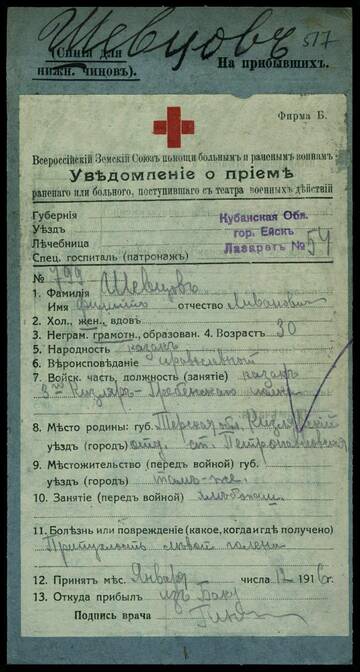 Шевцовъ 517
(Синія для
нижн. чиновъ).
На прибывшихъ.
Фирма Б.
Всероссійскій Земскій Союзъ помощи больнымъ и раненымъ воинамъ.
Увѣдомленіе о пріемѣ
раненаго или больного, поступившаго съ театра военныхъ дѣйствій
Губернія
Уѣздъ
Лѣчебница
Спец. госпиталь (патронажъ)
Кубанская Обл.
гор. Ейскъ
Лазаретъ № 54
№ 799
1. Фамилія Шевцовъ
Имя отчество Ивановичъ
2. Хол., жен., вдовъ.
3. Неграм. грамотн., образован. 4. Возрастъ 30
5. Народность казакъ
6. Вѣроисповѣданіе православный
7. Войск. часть, должность (занятіе) казакъ
3го Кизляро-Гребенского полка
8. Мѣсто родины: губ. Терская обл. Кизлярскій
уѣздъ (городъ) отд. ст.
9. Мѣстожительство (передъ войной) губ.
уѣздъ (городъ) тамъ-же
10. Занятіе (передъ войной)
11. Болѣзнь или поврежденіе (какое, когда и гдѣ получено)
голена
12. Принятъ мѣс. Января числа 12 1916 г.
13. Откуда прибылъ изъ Баку
Подпись врача